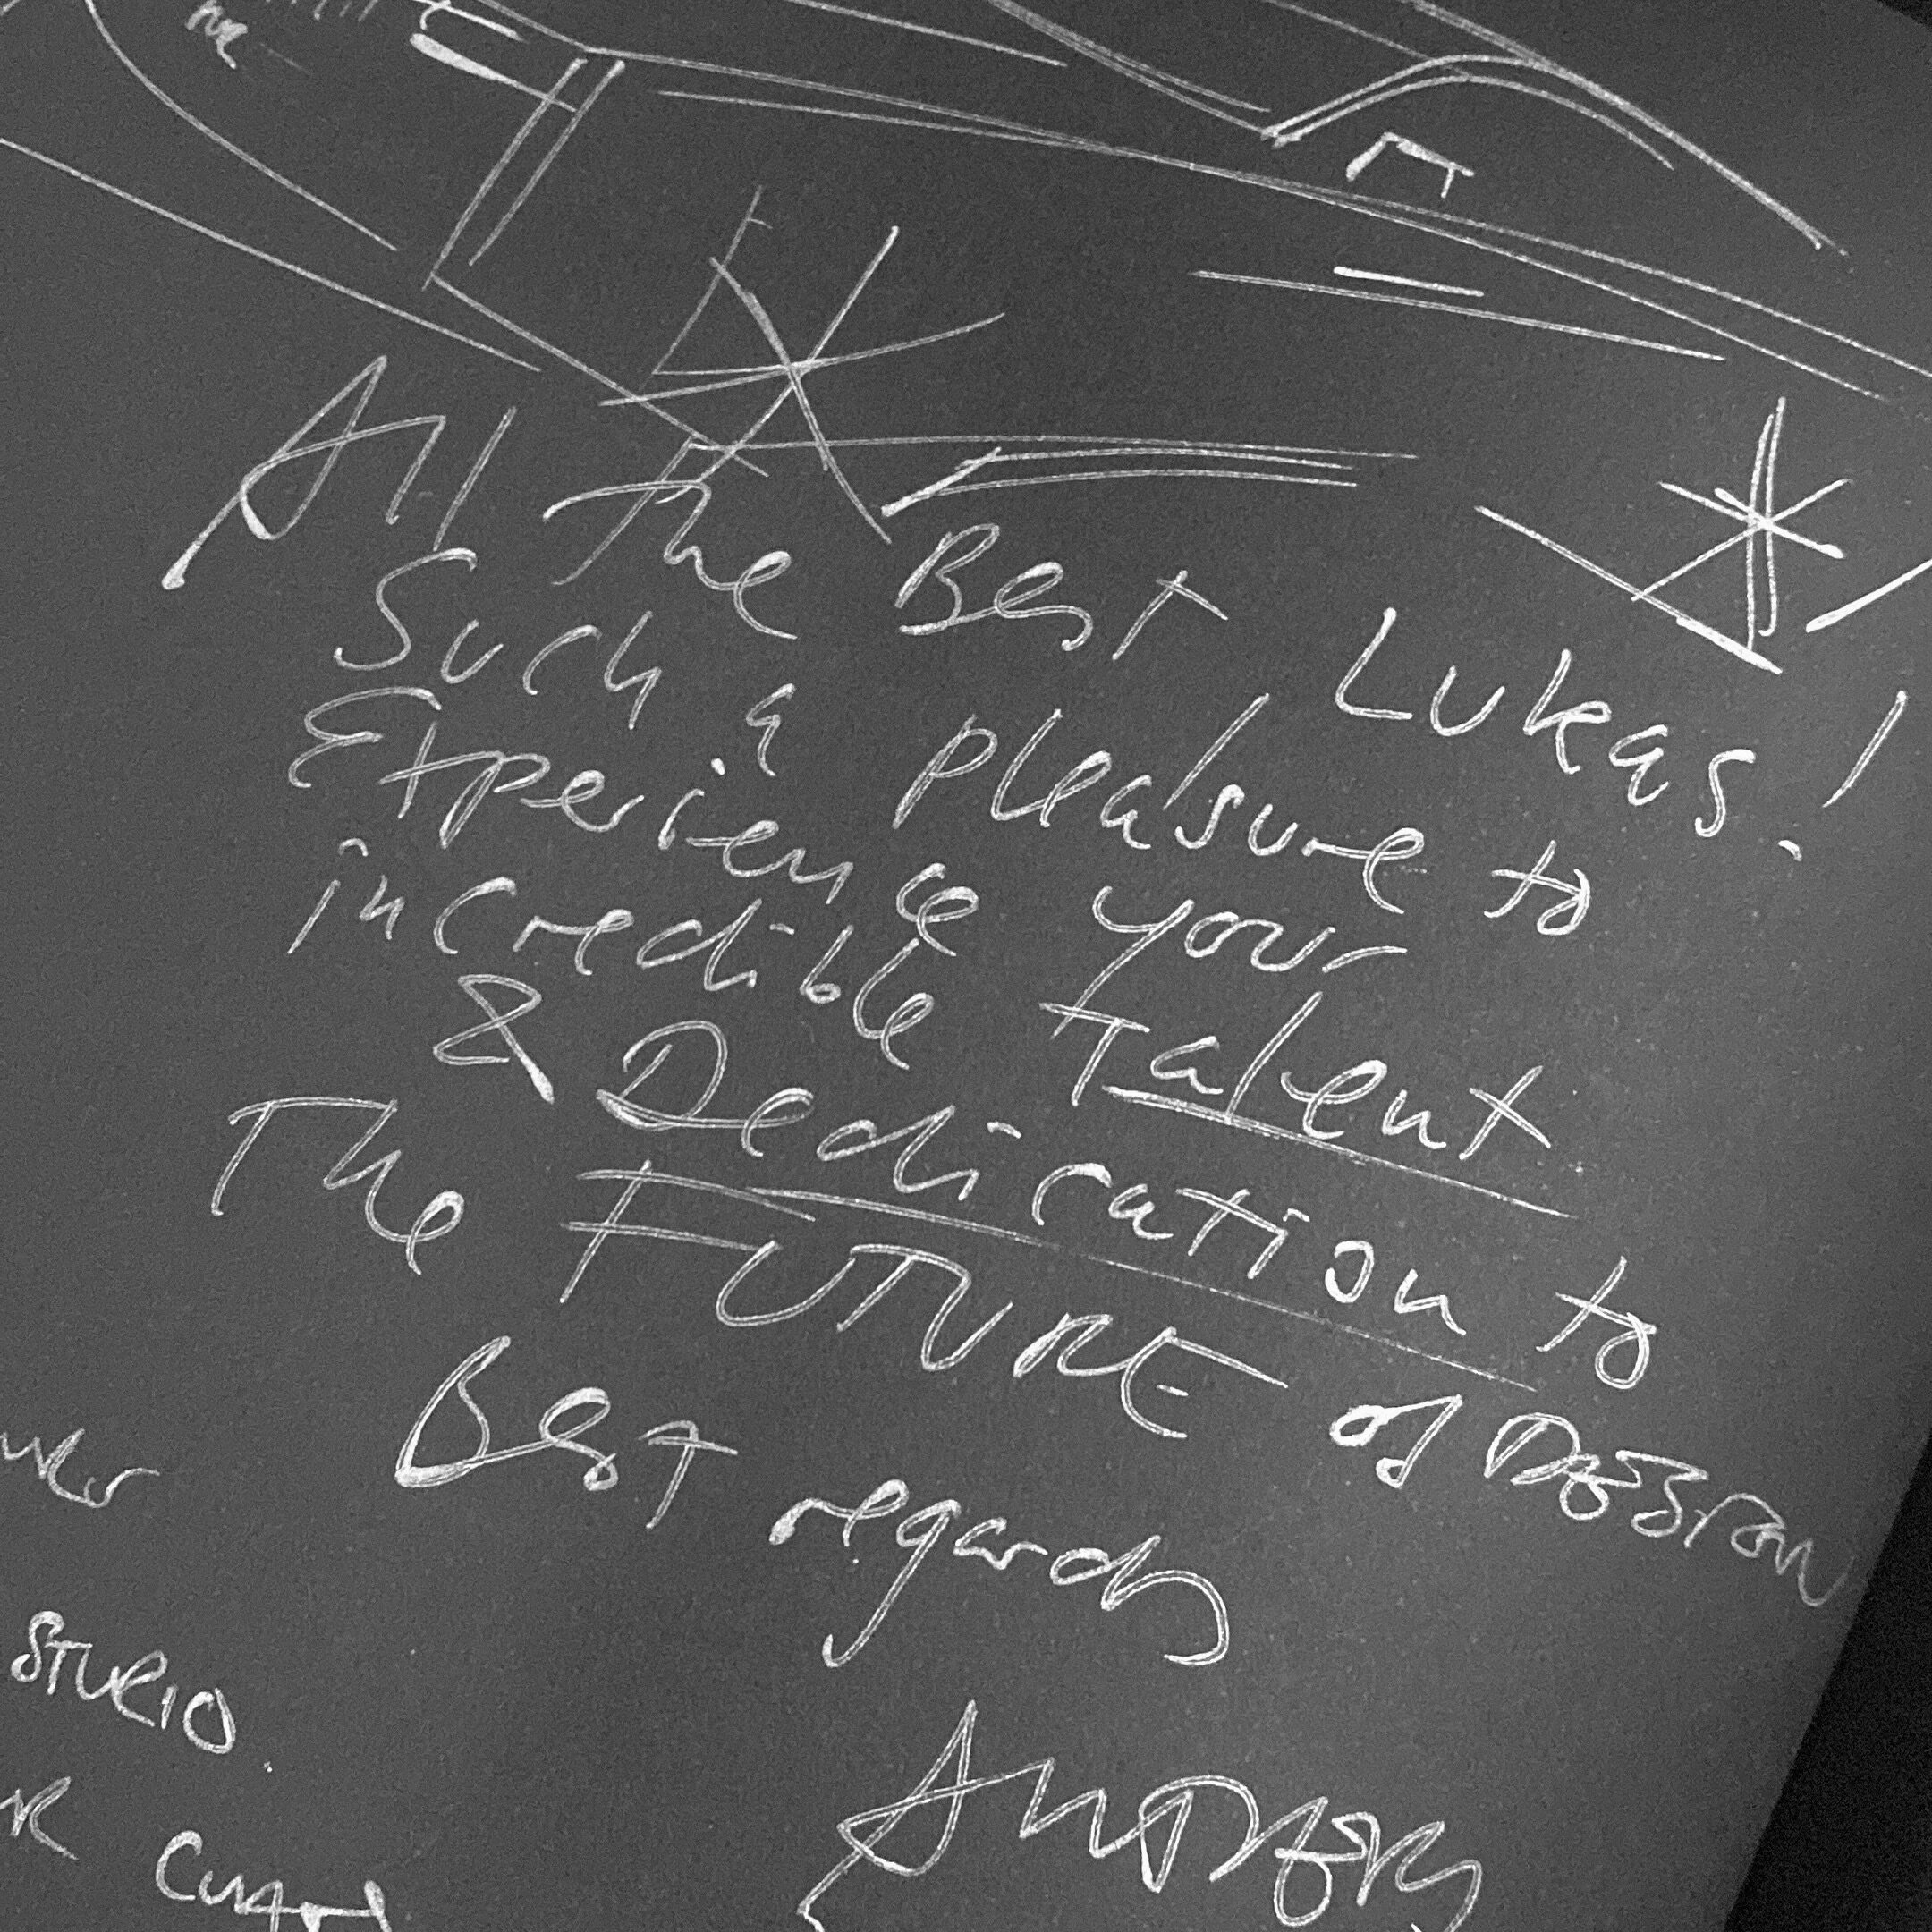 All The Best Lukas!
Such a pleasure to
Experience your
incredible Talent
& Dedication to
The FUTURE of DESIGN
Best regards
STUDIO.